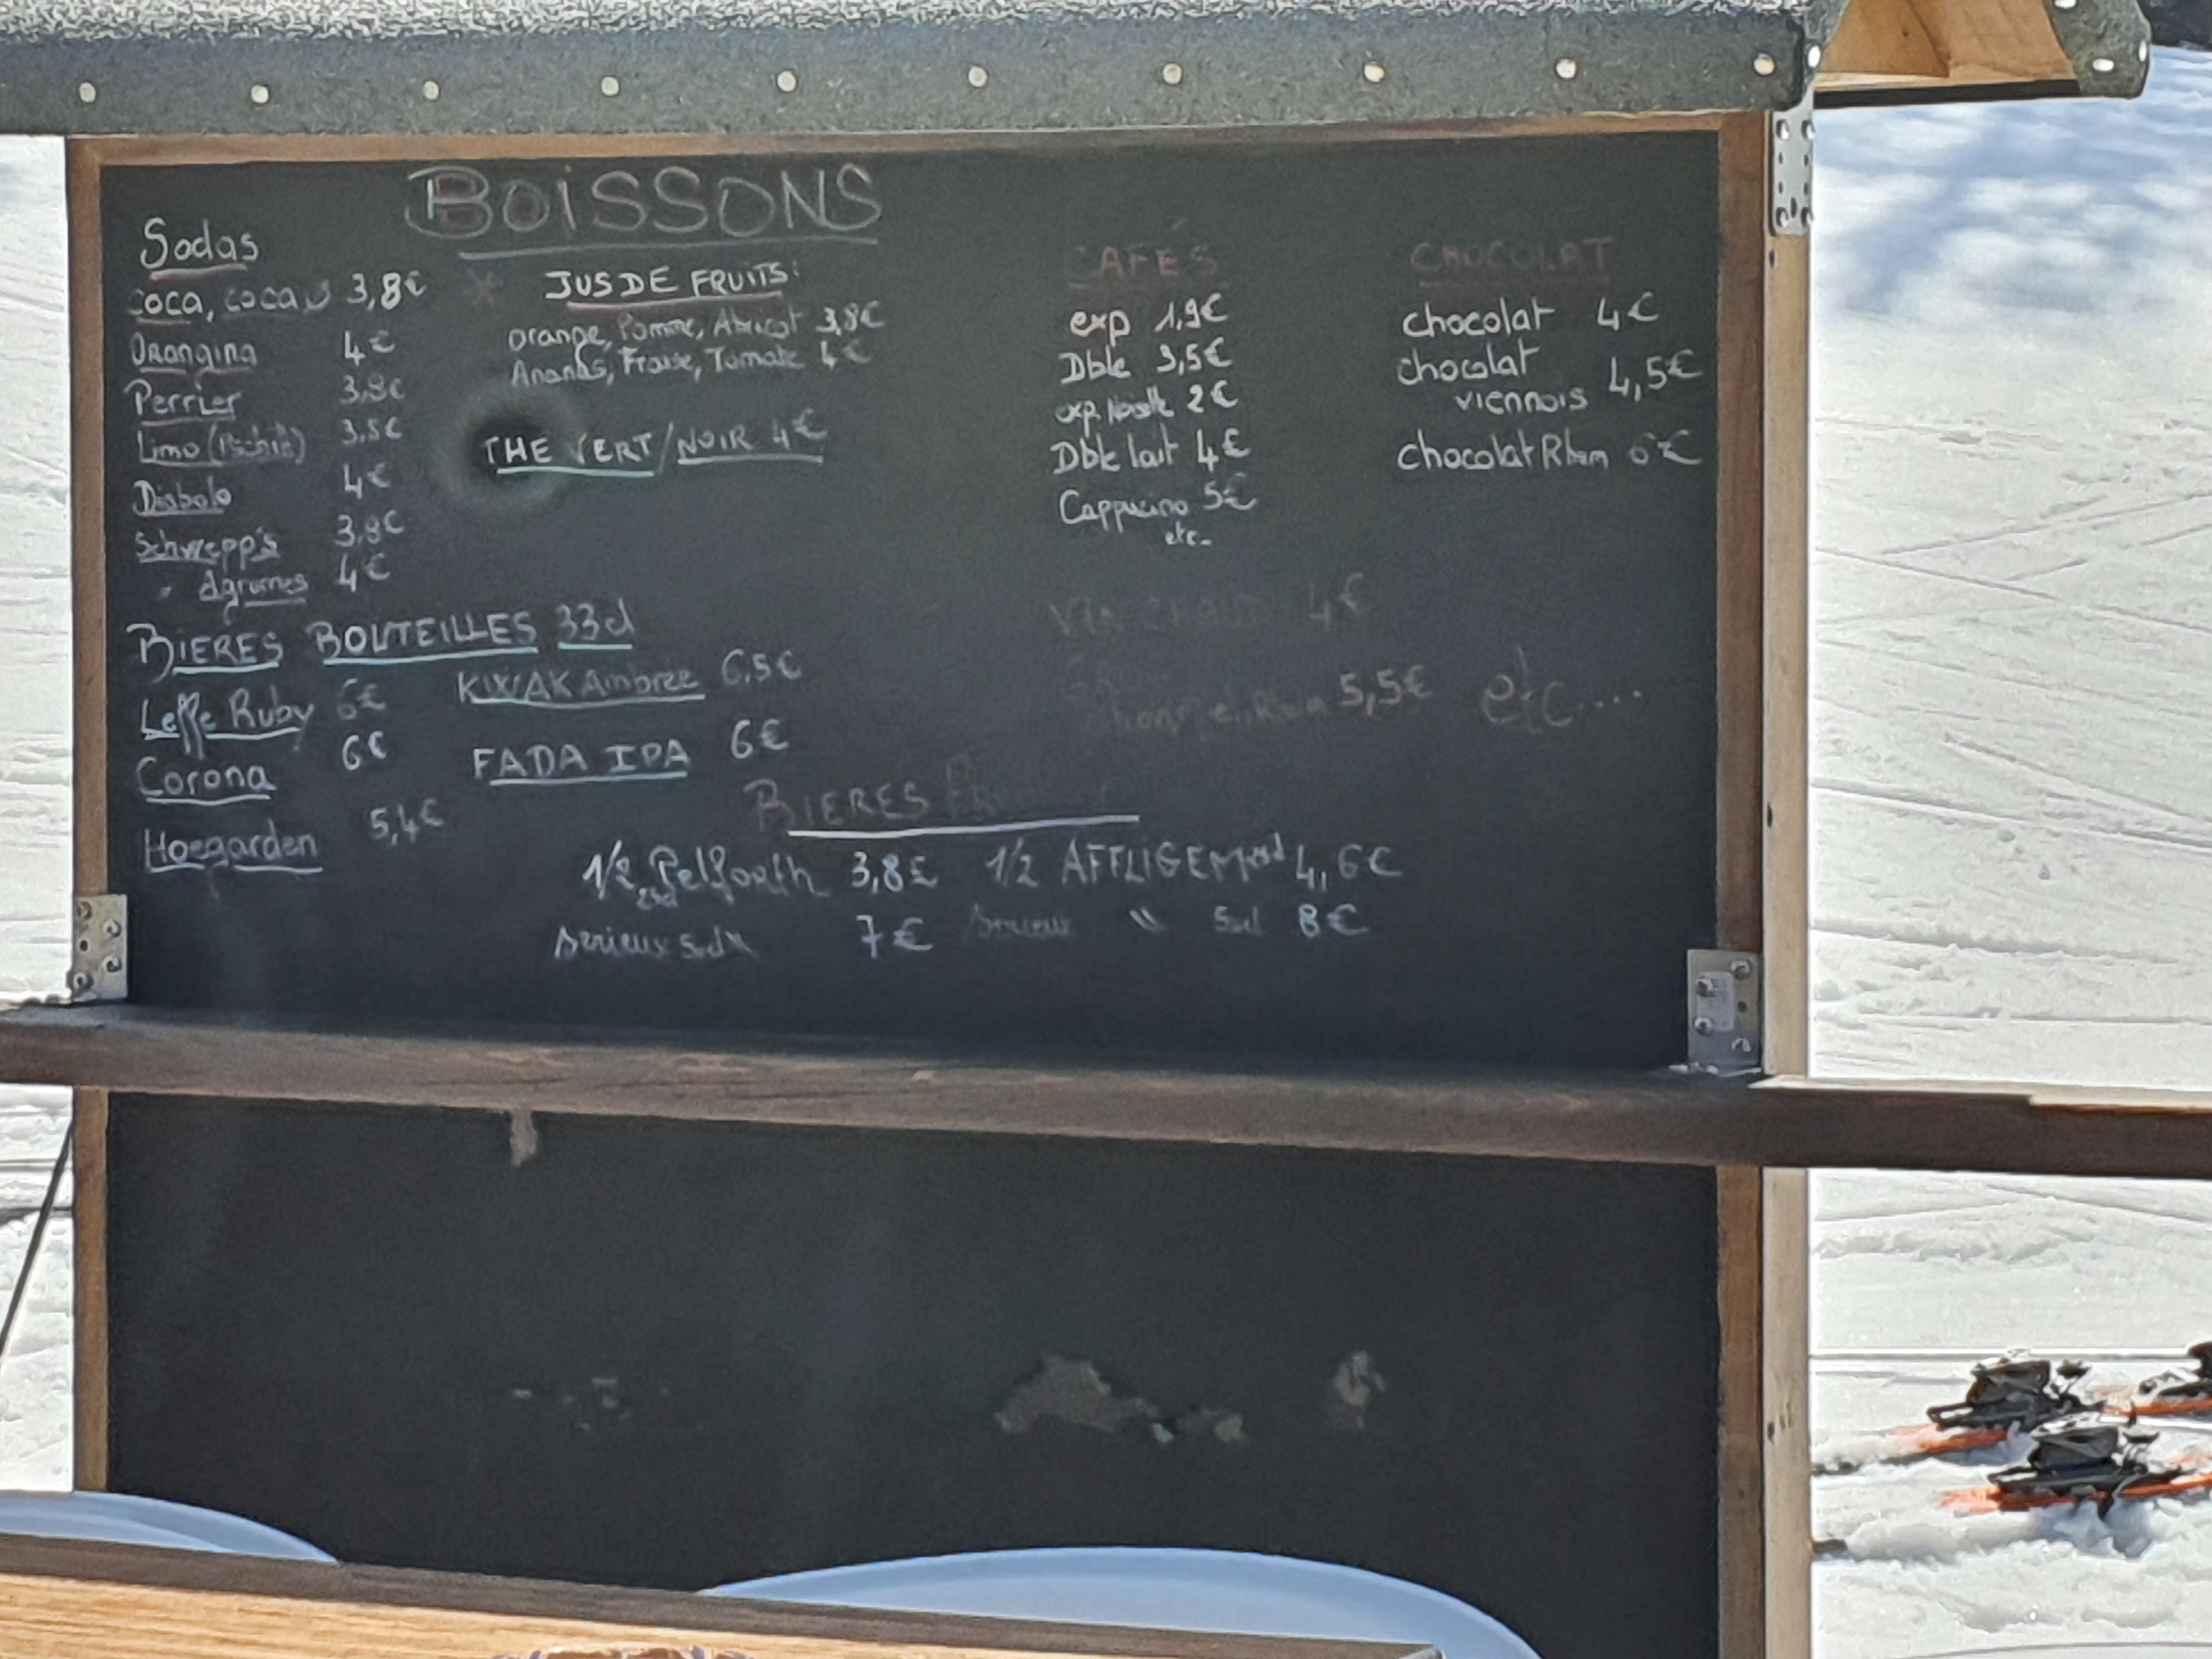 BOISSONS
Sodas
coca, coca 3,8€
Orangina 4€
Perrier 3,8€
Limo 3,5€
Diabolo 4€
Schwepp's 3,8€
" Agrumes 4€
JUS DE FRUITS:
Orange, Pomme, Abricot 3,8€
Ananas, Fraise, Tomate 4€
THE VERT/NOIR 4€
CAFÉS
exp 1,9€
Dble 3,5€
exp. 2€
Dble lait 4€
Cappucino 5€
etc
CHOCOLAT
chocolat 4€
chocolat
viennois 4,5€
chocolat Rhum 6€
VIN CHAUD 4€
5,5€ etc....
BIERES BOUTEILLES 33cl
Leffe Ruby 6€
Corona 6€
Hoegarden 5,4€
KWAK Ambree 6,5€
FADA IPA 6€
BIERES
1/2 Pelforth 3,8€ 1/2 AFFLIGEM 4,6€
serieux 7€ serieux " 8€